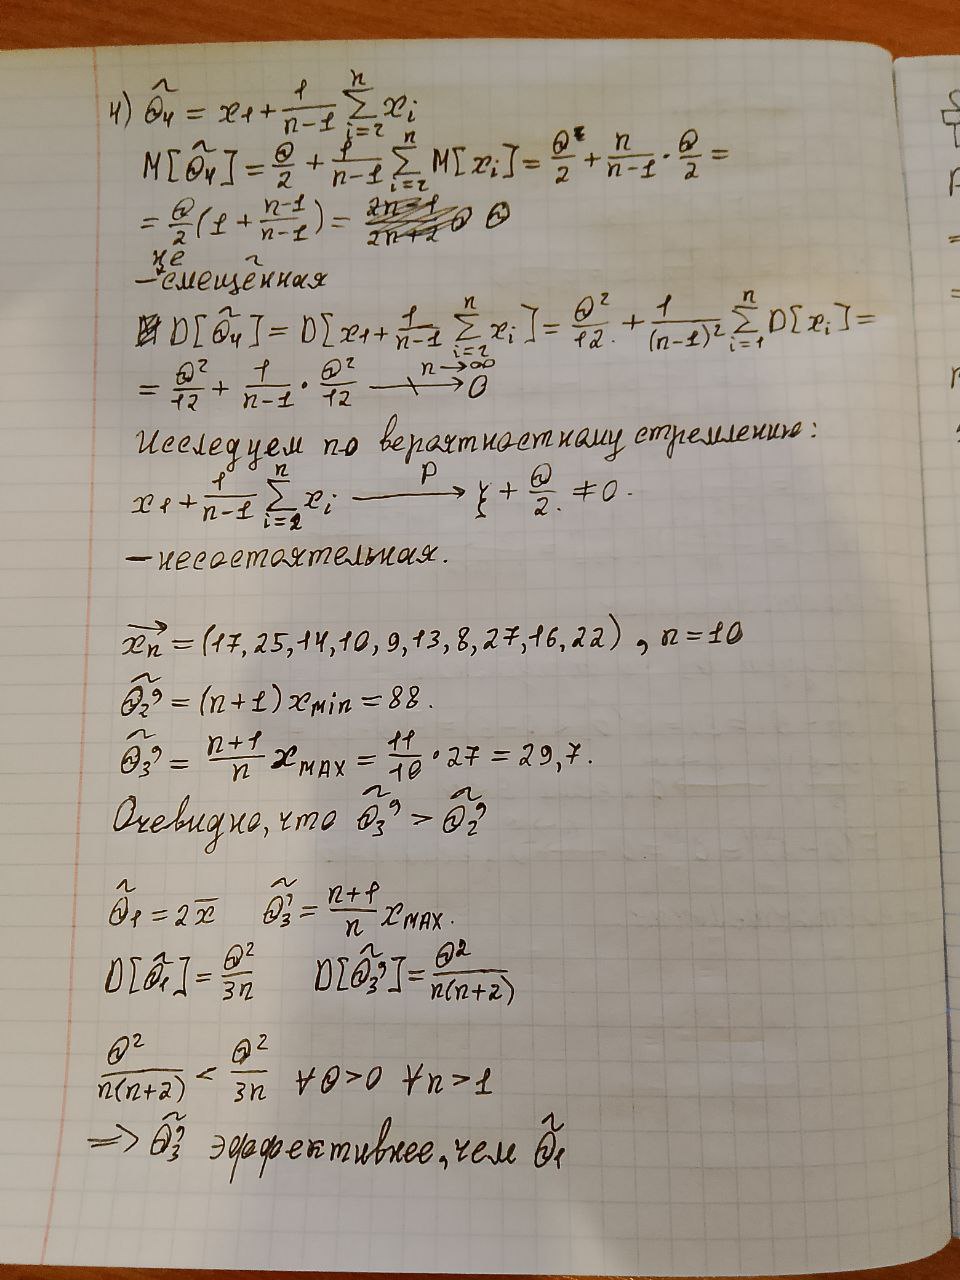 4) Θ̃₄ = x₁ + 1/(n-1) ∑_{i=2}^{n} xᵢ
M[Θ̃₄] = Θ/2 + 1/(n-1) ∑_{i=2}^{n} M[xᵢ] = Θ/2 + n/(n-1) · Θ/2 =
= Θ/2 (1 + (n-1)/(n-1)) = Θ
не
– смещённая
D[Θ̃₄] = D[x₁ + 1/(n-1) ∑_{i=2}^{n} xᵢ] = Θ²/12 + 1/(n-1)² ∑_{i=1}^{n} D[xᵢ] =
= Θ²/12 + 1/(n-1) · Θ²/12 ↛ (n→∞) 0
Исследуем по вероятностному стремлению:
x₁ + 1/(n-1) ∑_{i=2}^{n} xᵢ →(P) ξ + Θ/2 ≠ 0.
– несостоятельная.
x⃗ₙ = (17, 25, 14, 10, 9, 13, 8, 27, 16, 22), n = 10
Θ̃₂' = (n+1) x_min = 88.
Θ̃₃' = (n+1)/n x_MAX = 11/10 · 27 = 29,7.
Очевидно, что Θ̃₃' > Θ̃₂'
Θ̃₁ = 2x̄ Θ̃₃' = (n+1)/n x_MAX.
D[Θ̃₁] = Θ²/3n D[Θ̃₃'] = Θ²/(n(n+2))
Θ²/(n(n+2)) < Θ²/3n ∀Θ>0 ∀n>1
=> Θ̃₃' эффективнее, чем Θ̃₁